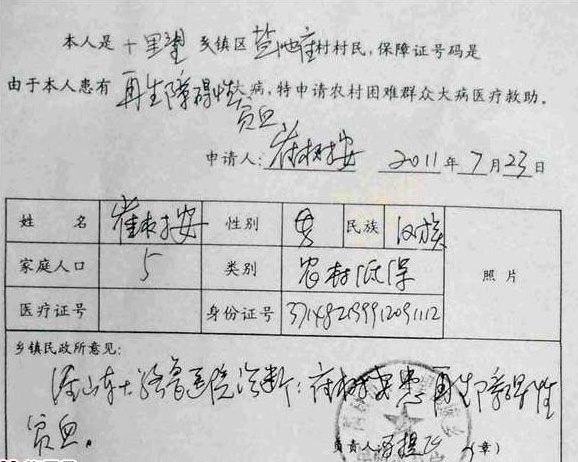 本人是 十里望 乡镇区 盐地崔村村民,保障证号码是
由于本人患有 再生障碍性大病,特申请农村困难群众大病医疗救助。
贫血
申请人: 崔树安 2011年7月23日
姓 名 崔树安 性别 男 民族 汉族 照 片
家庭人口 5 类别 农村低保
医疗证号 身份证号
乡镇民政所意见:
经山东大学齐鲁医院诊断:崔树安患再生障碍性
贫血。
负责人: (章)